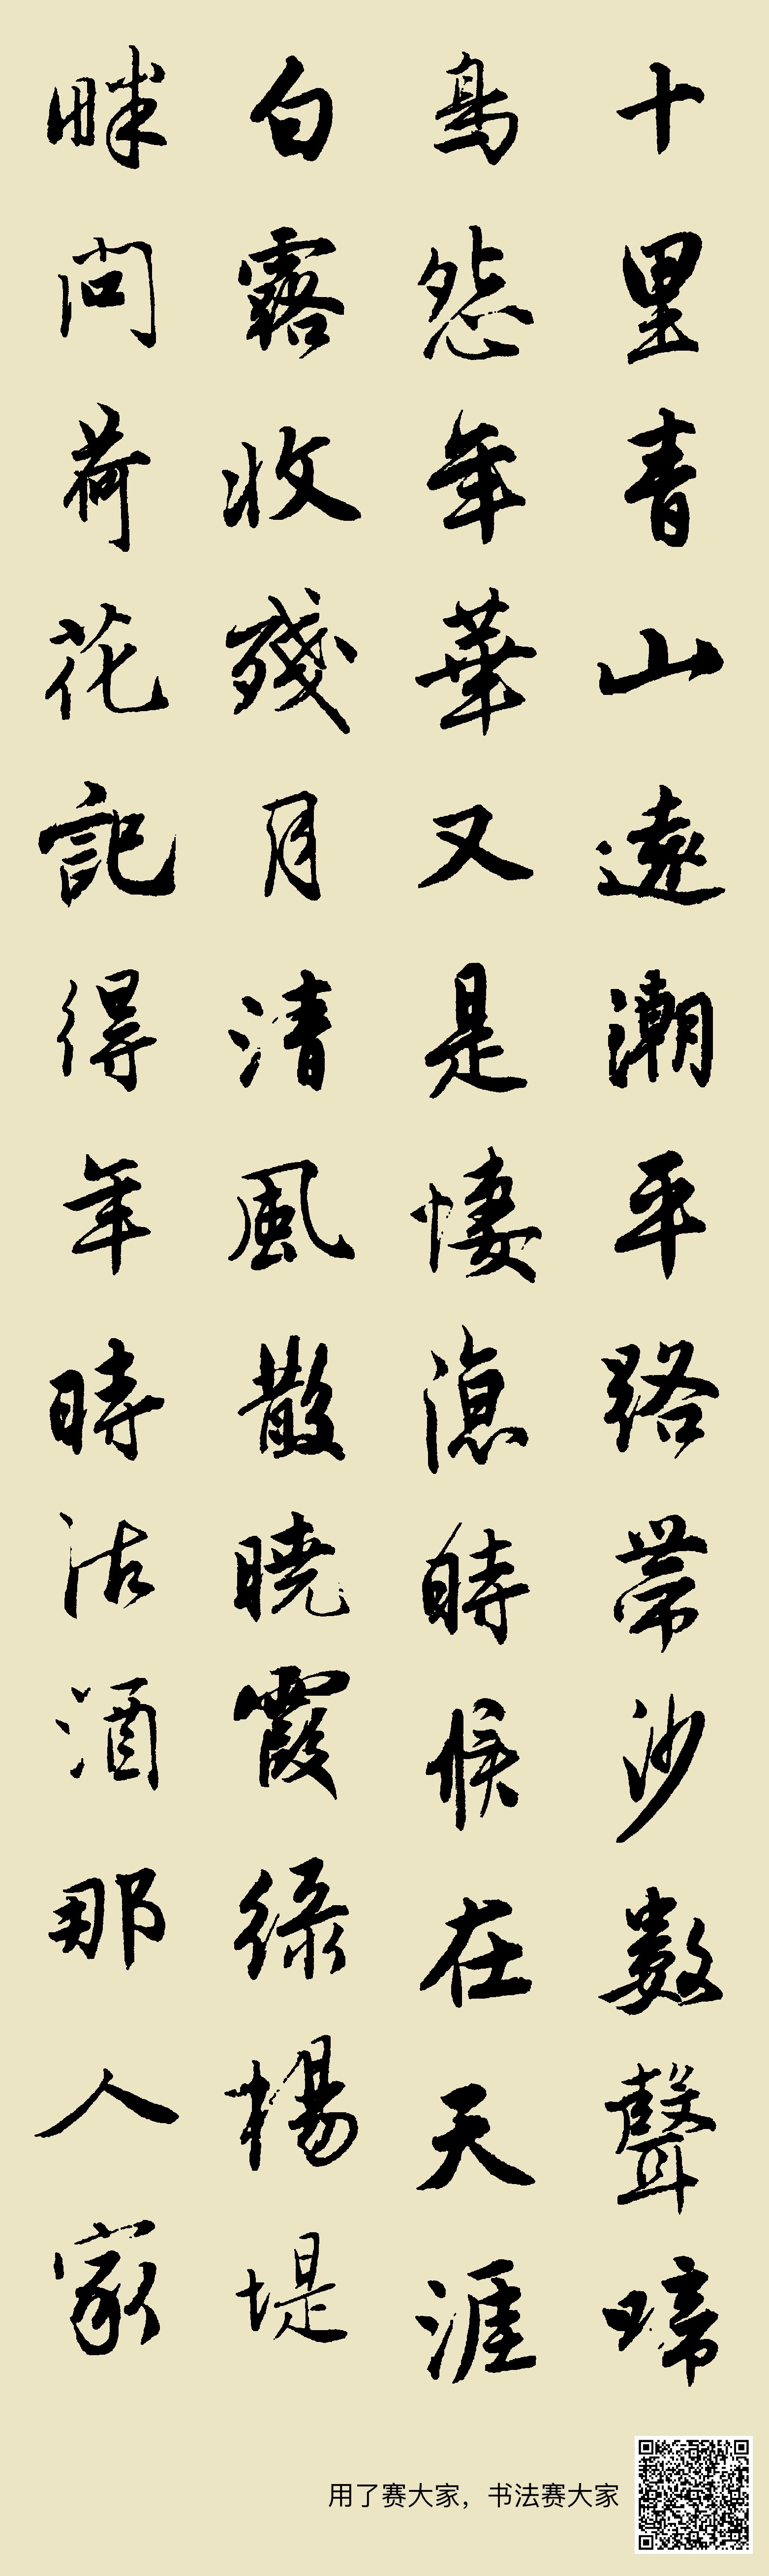 十里青山遠潮平路帶沙數聲啼
鳥怨年華又是悽涼時候在天涯
白露收殘月清風散曉霞綠楊堤
畔問荷花記得年時沽酒那人家
用了赛大家，书法赛大家